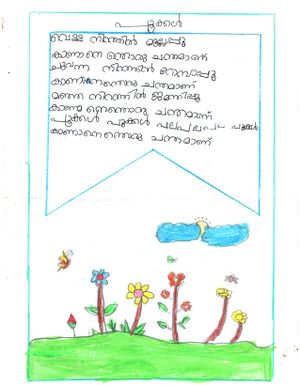 പൂക്കൾ
വെള്ള നിറത്തിൽ മുല്ലപ്പൂ
കാണാനെന്തൊരു ചന്തമാണ്
ചുവന്ന നിറത്തിൽ റോസാപ്പൂ
കാണാനെന്തൊരു ചന്തമാണ്
മഞ്ഞ നിറത്തിൽ ജമന്തിപ്പൂ
കാണാനെന്തൊരു ചന്തമാണ്
പൂക്കൾ പൂക്കൾ പലപലപല പൂക്കൾ
കാണാനെന്തൊരു ചന്തമാണ്